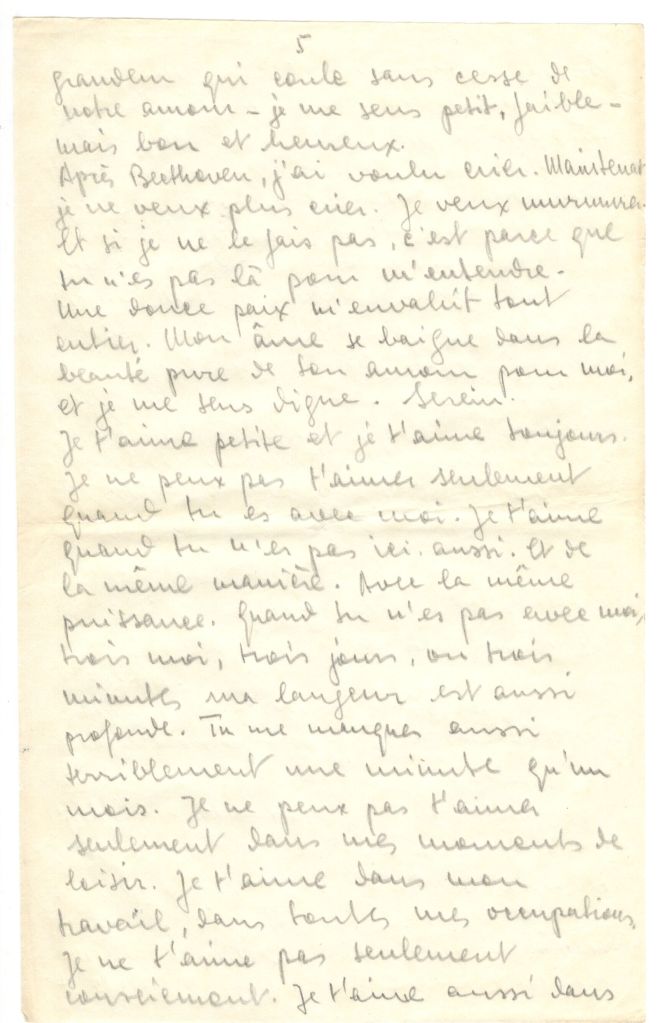 5
grandeur qui coule sans cesse de
notre amour - je me sens petit, faible -
mais bon et heureux.
Après Beethoven, j'ai voulu crier. Maintenant
je ne veux plus crier. Je veux murmurer.
Et si je ne le fais pas, c'est parce que
tu n'es pas là pour m'entendre.
Une douce paix m'envahit tout
entier. Mon âme se baigne dans la
beauté pure de ton amour pour moi,
et je me sens digne. Serein.
Je t'aime petite et je t'aime toujours.
Je ne peux pas t'aimer seulement
quand tu es avec moi. Je t'aime
quand tu n'es pas ici aussi. Et de
la même manière. Avec la même
puissance. Quand tu n'es pas avec moi,
trois moi, trois jours, ou trois
minutes ma langeur est aussi
profonde. Tu me manques aussi
terriblement une minute qu'un
mois. Je ne peux pas t'aimer
seulement dans mes moments de
loisir. Je t'aime dans mon
travail, dans toutes mes occupations.
Je ne t'aime pas seulement
consciement. Je t'aime aussi dans